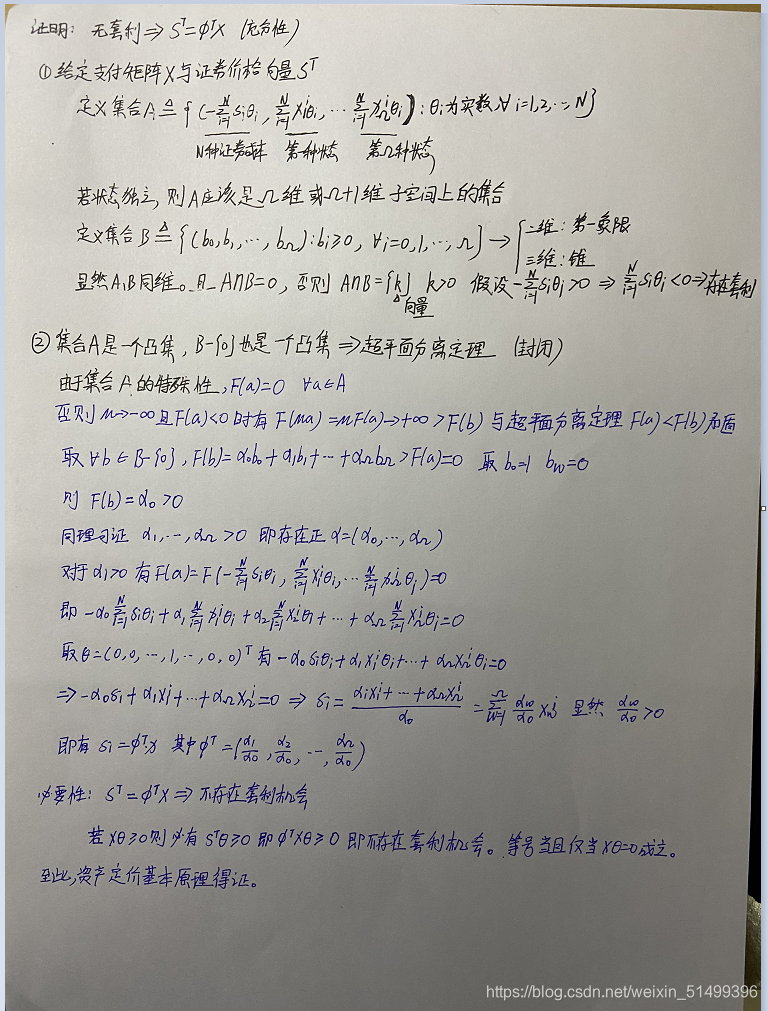 证明: 无套利 ⇒ Sᵀ=φᵀX (充分性)
① 给定支付矩阵X与证券价格向量Sᵀ
定义集合A ≜ {(-∑_{i=1}^N s_iθ_i, ∑_{i=1}^N x_1^iθ_i, … ∑_{i=1}^N x_Ω^iθ_i): θ_i为实数, ∀i=1,2,…,N}
N种证券成本 第一种状态 第Ω种状态
若状态独立, 则A应该是Ω维或Ω+1维子空间上的集合
定义集合B ≜ {(b₀,b₁,…,b_Ω): b_i≥0, ∀i=0,1,…,Ω} → { 二维: 第一象限
三维: 锥
显然A,B同维。且 A∩B=0, 否则 A∩B={k} k>0 假设 -∑_{i=1}^N s_iθ_i>0 ⇒ ∑_{i=1}^N s_iθ_i<0 ⇒ 存在套利
向量
② 集合A是一个凸集, B-{0}也是一个凸集 ⇒ 超平面分离定理 (封闭)
由于集合A的特殊性, F(a)=0 ∀a∈A
否则 n→-∞ 且F(a)<0时有 F(na)=nF(a)→+∞>F(b) 与超平面分离定理 F(a)<F(b)矛盾
取 ∀b∈B-{0}, F(b)=α₀b₀+α₁b₁+…+α_Ωb_Ω>F(a)=0 取 b₀=1 b_w=0
则 F(b)=α₀>0
同理可证 α₁,…,α_Ω>0 即存在正α=(α₀,…,α_Ω)
对于α_i>0 有F(a)=F(-∑_{i=1}^N s_iθ_i, ∑_{i=1}^N x_1^iθ_i, … ∑_{i=1}^N x_Ω^iθ_i)=0
即 -α₀∑_{i=1}^N s_iθ_i+α₁∑_{i=1}^N x_1^iθ_i+α₂∑_{i=1}^N x_2^iθ_i+…+α_Ω∑_{i=1}^N x_Ω^iθ_i=0
取θ=(0,0,…,1,…,0,0)ᵀ 有 -α₀s_iθ_i+α₁x_1^iθ_i+…+α_Ωx_Ω^iθ_i=0
⇒ -α₀s_i+α₁x_1^i+…+α_Ωx_Ω^i=0 ⇒ s_i=(α₁x_1^i+…+α_Ωx_Ω^i)/α₀ =∑_{w=1}^Ω (α_w/α₀)x_w^i 显然 α_w/α₀>0
即有 s_i=φᵀx 其中φᵀ=(α₁/α₀, α₂/α₀, …, α_Ω/α₀)
必要性: Sᵀ=φᵀX ⇒ 不存在套利机会
若Xθ≥0则必有Sᵀθ≥0 即φᵀXθ≥0 即不存在套利机会。等号当且仅当Xθ=0成立。
至此,资产定价基本原理得证。
https://blog.csdn.net/weixin_51499396